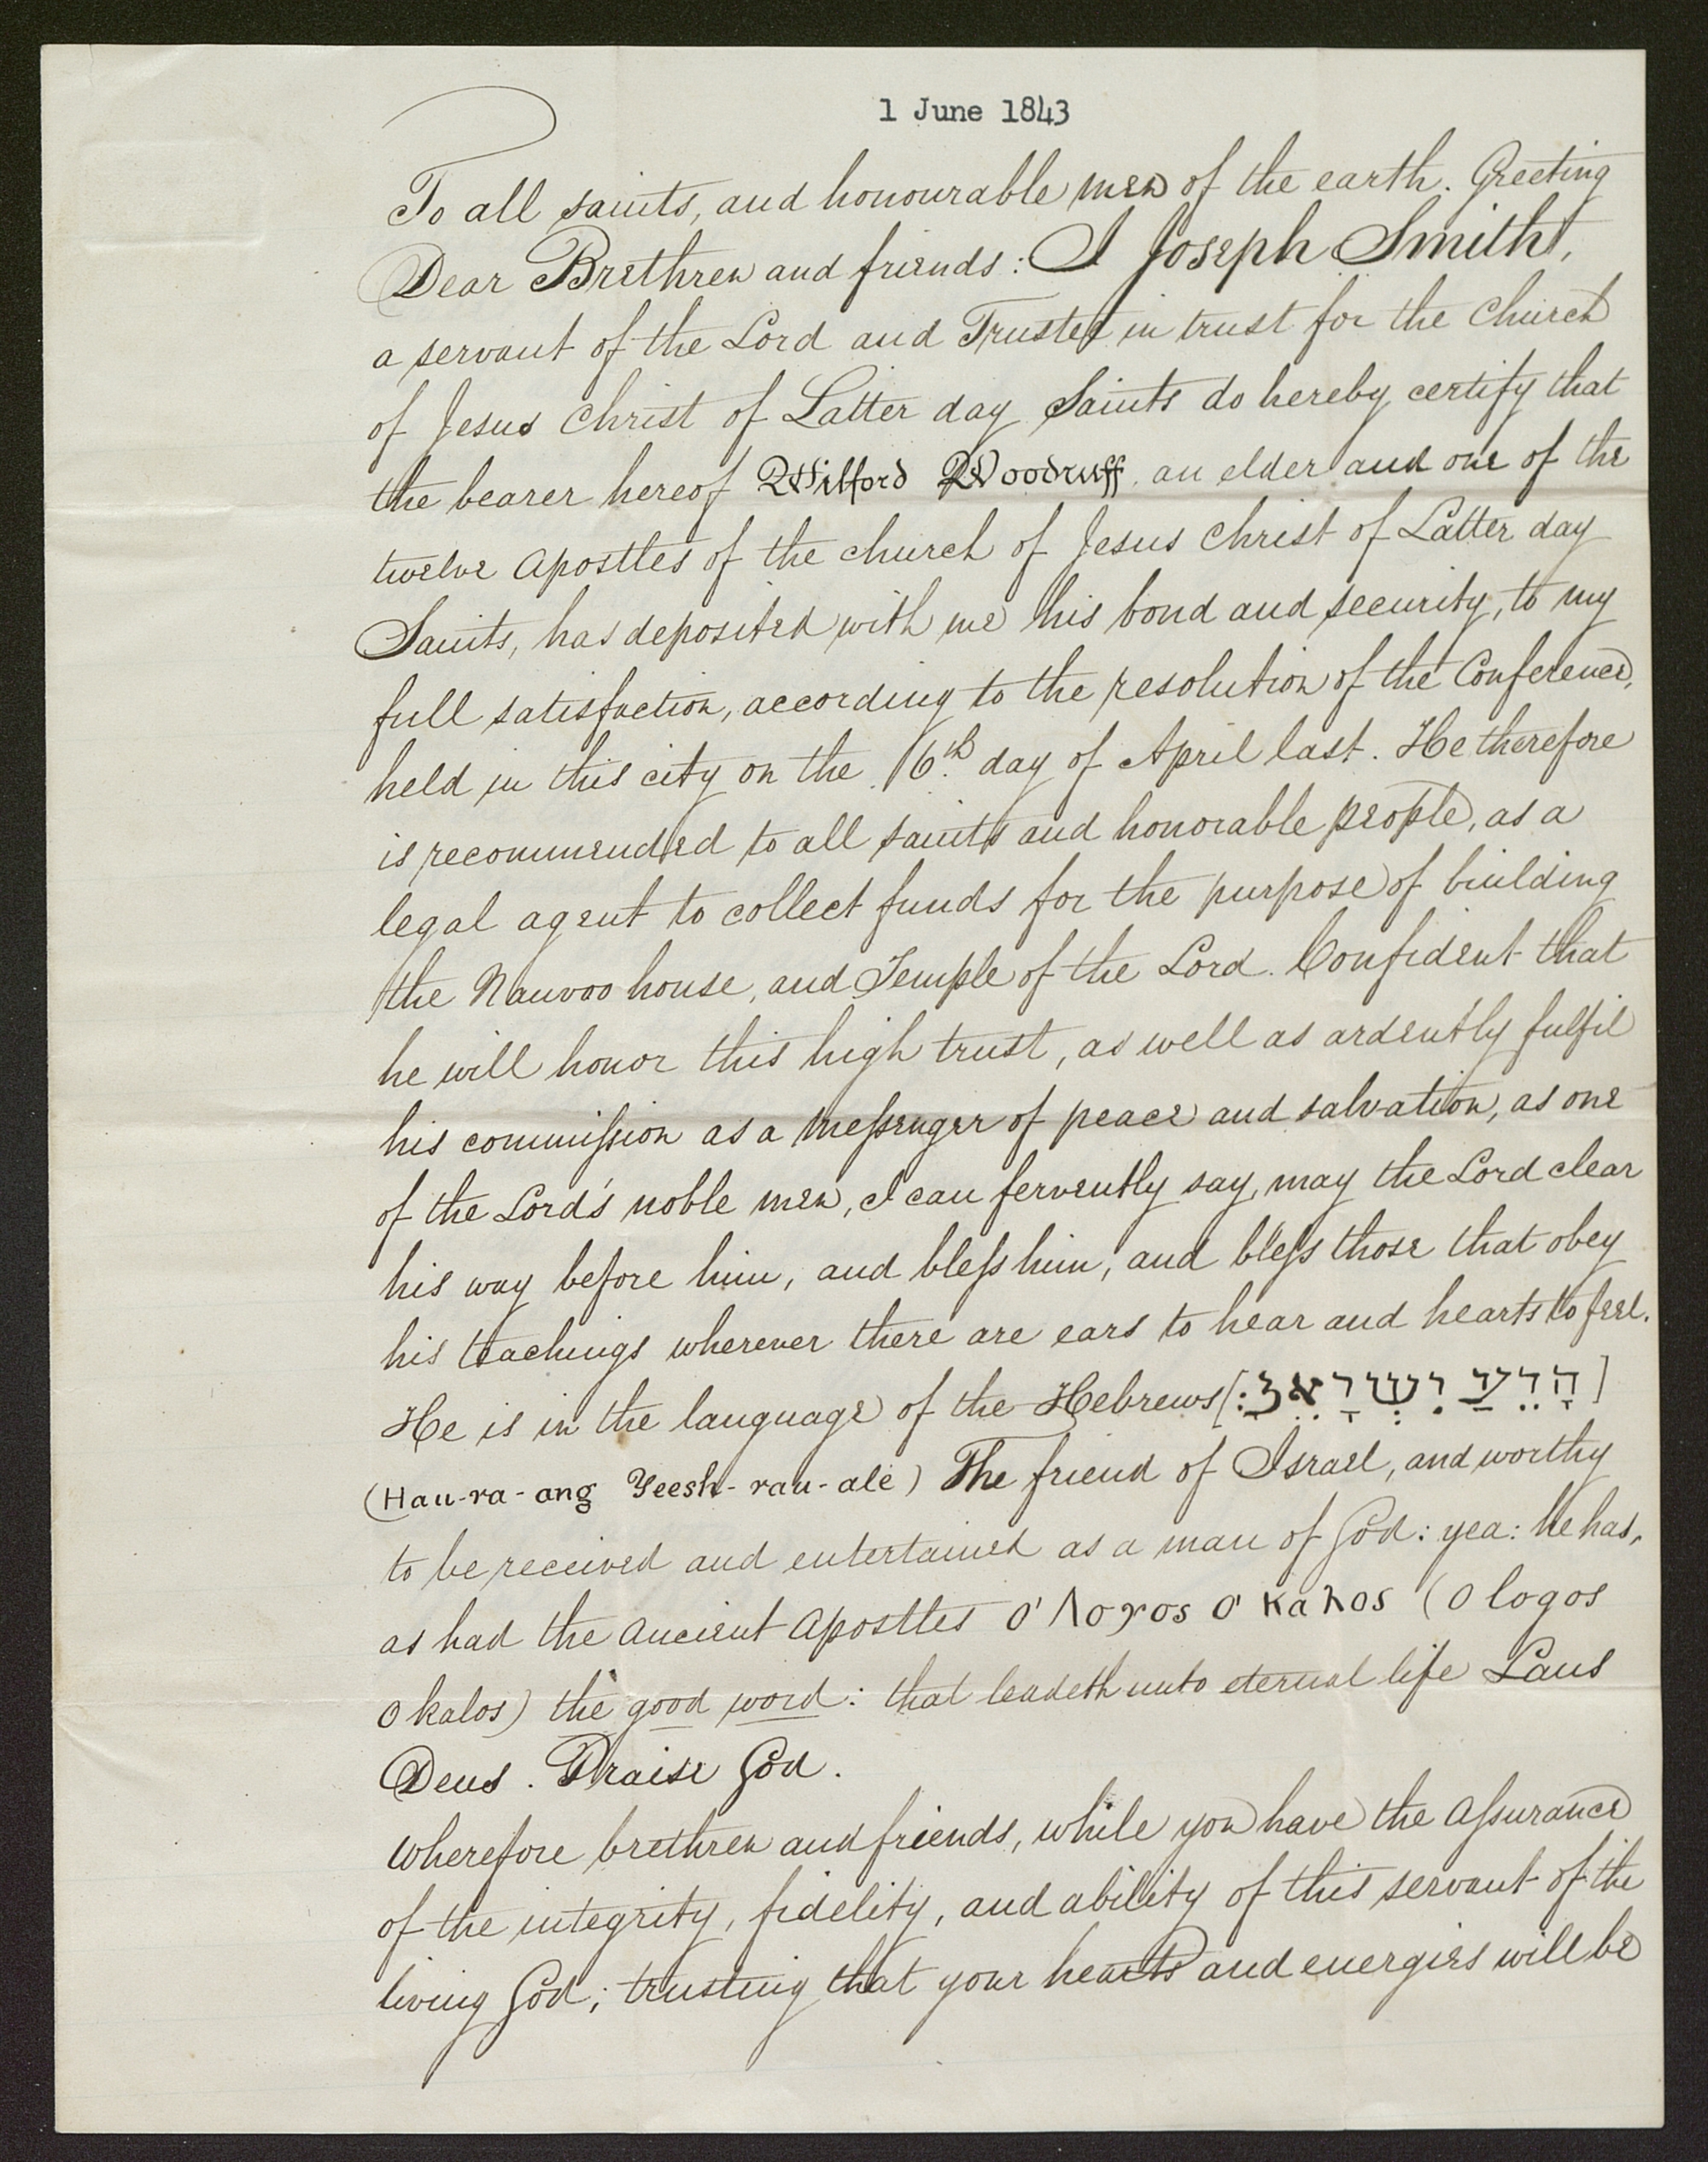 1 June 1843
To all saints, and honourable men of the earth. Greeting
Dear Brethren and friends: I Joseph Smith,
a servant of the Lord and Trustee in trust for the Church
of Jesus Christ of Latter day Saints do hereby certify that
the bearer hereof Wilford Woodruff, an elder and one of the
twelve Apostles of the church of Jesus Christ of Latter day
Saints, has deposited with me his bond and security, to my
full satisfaction, according to the resolution of the Conference,
held in this city on the 6th day of April last. He therefore
is recommended to all saints and honorable people, as a
legal agent to collect funds for the purpose of building
the Nauvoo house, and Temple of the Lord. Confident that
he will honor this high trust, as well as ardently fulfil
his commission as a messenger of peace and salvation, as one
of the Lord's noble men, I can fervently say, may the Lord clear
his way before him, and bless him, and bless those that obey
his teachings wherever there are ears to hear and hearts to feel.
He is in the language of the Hebrews [הָרֵעַ יִשְׂרָאֵל:]
(Hau-ra-ang Yeesh-rau-ale) The friend of Israel, and worthy
to be received and entertained as a man of God: yea: he has,
as had the Ancient Apostles O' Λογος O' Καλος (O logos
O kalos) the good word: that leadeth unto eternal life Laus
Deus. Praise God.
Wherefore brethren and friends, while you have the Assurance
of the integrity, fidelity, and ability of this servant of the
living God; trusting that your hearts and energies will be